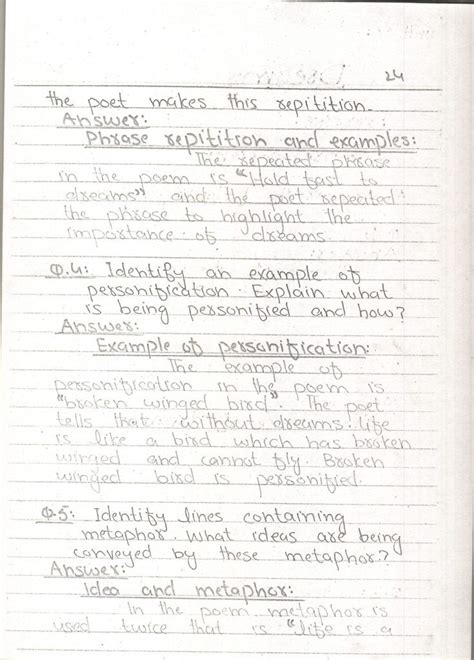 24
the poet makes this repitition.
Answer:
Phrase repitition and examples:
The repeated phrase
in the poem is "Hold fast to
dreams" and the poet repeated
the phrase to highlight the
importance of dreams
Q.4: Identify an example of
personification. Explain what
is being personified and how?
Answer:
Example of personification:
The example of
personification in the poem is
"broken winged bird". The poet
tells that without dreams life
is like a bird which has broken
winged and cannot fly. Broken
winged bird is personified.
Q.5: Identify lines containing
metaphor. what ideas are being
conveyed by these metaphor?
Answer:
Idea and metaphor:
In the poem metaphor is
used twice that is "life is a